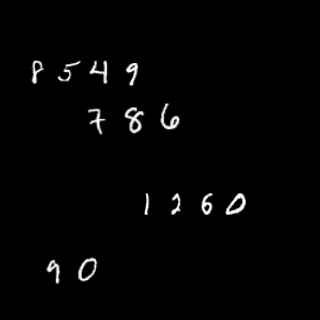 8 5 4 9
7 8 6
1 2 6 0
9 0